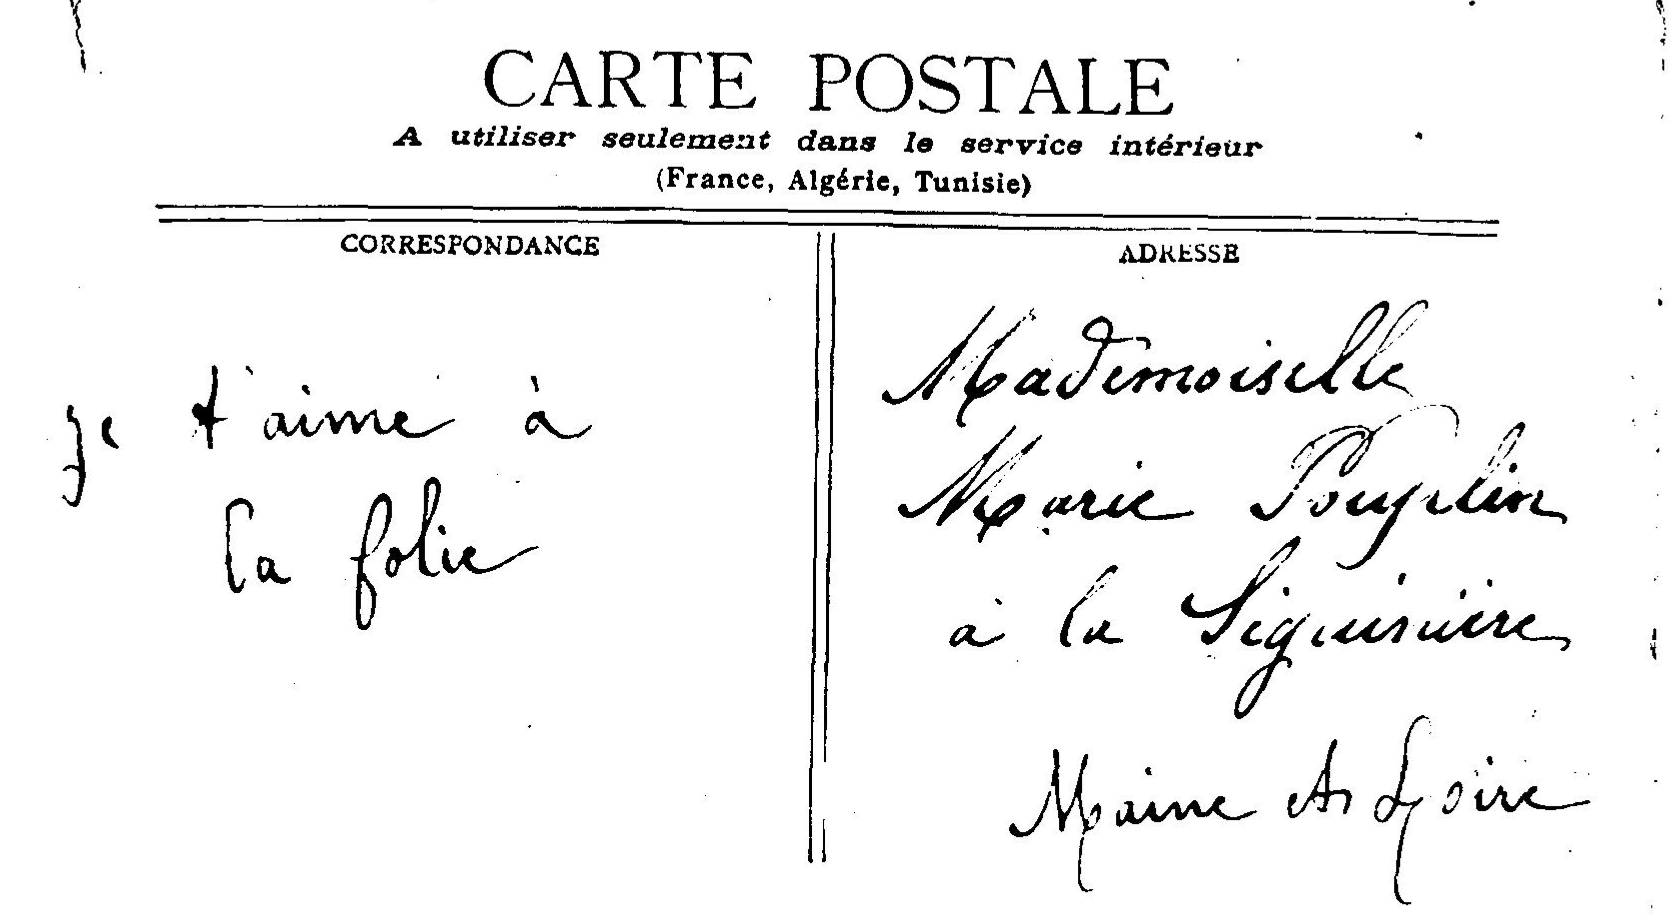 CARTE POSTALE
A utiliser seulement dans le service intérieur
(France, Algérie, Tunisie)
CORRESPONDANCE
je t'aime à
la folie
ADRESSE
Mademoiselle
Marie Pouplin
à la Séguinière
Maine et Loire